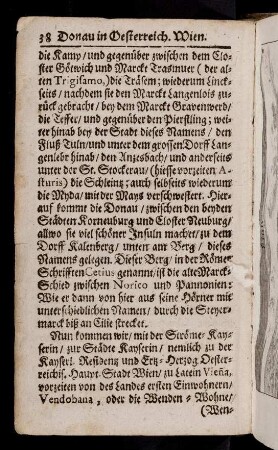 38 Donau in Oesterreich. Wien.
die Kamp/ und gegenüber zwischen dem Clo-
ster Götwich und Marckt Trasmuer (der al-
ten Trigisamo,) die Träsem; wiederum Linck-
seits/ nachdem sie den Marckt Langenlois zu-
rück gebracht/ bey dem Marckt Gravenwerd/
die Teffer/ und gegenüber den Pierstling; wei-
ter hinab bey der Stadt dieses Namens/ den
Fluß Tuln/ und unter dem grossen Dorff Lang-
genlebr hinab/ den Anzesbach/ und anderseits
unter der St. Stockerau/ (hiesse vorzeiten A-
sturis) die Schleinz; auch selbseits wiederum
die Myda/ mit der Mays verschwestert. Hier-
auf kommt die Donau/ zwischen den beyden
Städten Korneuburg und Closter Neuburg/
allwo sie viel schöner Insuln machet/ zu dem
Dorff Kalenberg/ unten am Berg/ dieses
Namens gelegen. Dieser Berg/ in der Röme-
Schrifften Cetius genannt/ ist die alte Marck-
Schied zwischen Norico und Pannonien:
Wie er dann von hier aus seine Hörner mit
unterschiedlichen Namen/ durch die Steyer-
marck biß an Cilie strecket.
Nun kommen wir/ mit der Ströme-Kay-
serin/ zur Städte Kayserin/ nemlich zu der
Kayserl. Residenz und Ertz-Herzog Oester-
reichis. Haupt-Stadt Wien/ zu Latein Vieña,
vorzeiten von des Landes ersten Einwohnern/
Vendobana, oder die Wenden-Wohne/
(Wen-